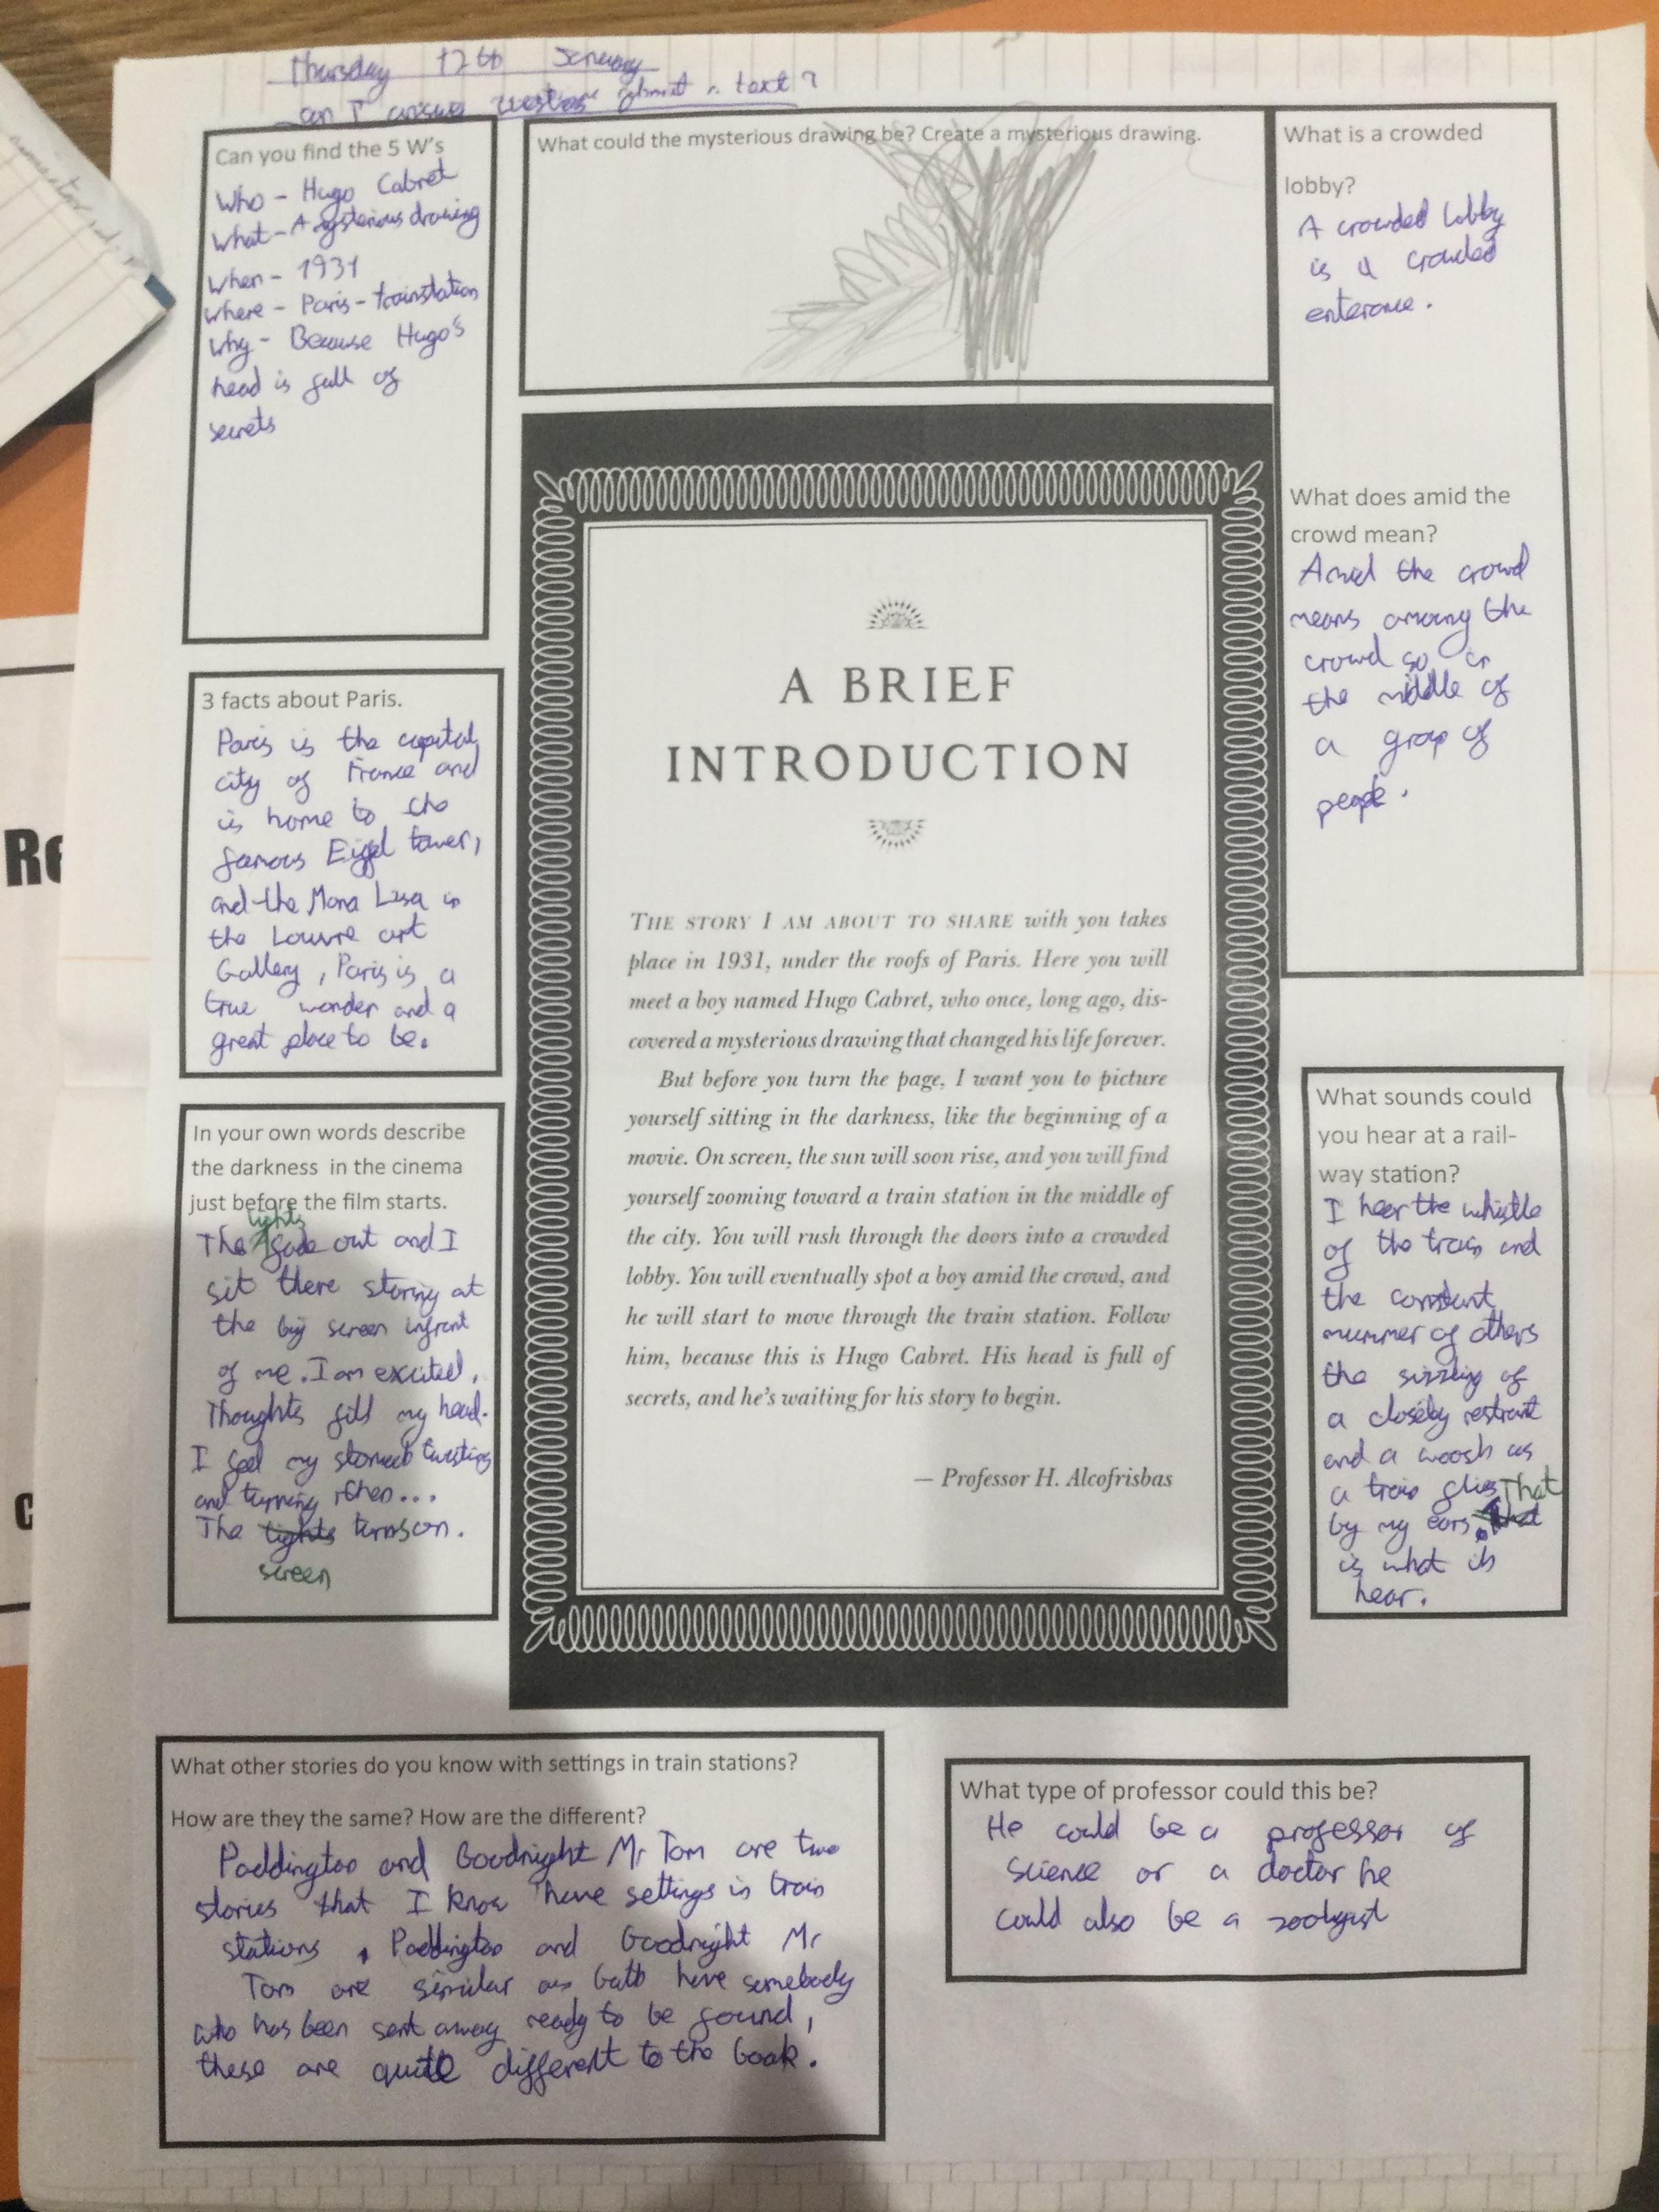 Thursday 12th January
can I answer questions about a text?
Can you find the 5 W's
Who - Hugo Cabret
What - A mysterious drawing
When - 1931
where - Paris - trainstation
Why - Because Hugo's
head is full of
secrets
What could the mysterious drawing be? Create a mysterious drawing.
What is a crowded
lobby?
A crowded lobby
is a crowded
enterance.
What does amid the
crowd mean?
Amid the crowd
means among the
crowd so in
the middle of
a group of
people.
3 facts about Paris.
Paris is the capital
city of France and
is home to the
famous Eiffel tower,
and the Mona Lisa in
the Louvre art
Gallery, Paris is a
true wonder and a
great place to be.
In your own words describe
the darkness in the cinema
just before the film starts.
lights
The fade out and I
sit there staring at
the big screen infront
of me. I am excited.
Thoughts fill my head.
I feel my stomach twisting
and turning then...
The lights turns on.
screen
A BRIEF
INTRODUCTION
THE STORY I AM ABOUT TO SHARE with you takes
place in 1931, under the roofs of Paris. Here you will
meet a boy named Hugo Cabret, who once, long ago, dis-
covered a mysterious drawing that changed his life forever.
But before you turn the page, I want you to picture
yourself sitting in the darkness, like the beginning of a
movie. On screen, the sun will soon rise, and you will find
yourself zooming toward a train station in the middle of
the city. You will rush through the doors into a crowded
lobby. You will eventually spot a boy amid the crowd, and
he will start to move through the train station. Follow
him, because this is Hugo Cabret. His head is full of
secrets, and he's waiting for his story to begin.
— Professor H. Alcofrisbas
What sounds could
you hear at a rail-
way station?
I hear the whistle
of the train and
the constant
mummer of others
the sizzling of
a closeby restrant
and a woosh as
a train glies That
by my ears. that
is what ih
hear.
What other stories do you know with settings in train stations?
How are they the same? How are the different?
Paddington and Goodnight Mr Tom are two
stories that I know have settings in train
stations. Paddington and Goodnight Mr
Tom are similar as both have somebody
who has been sent away ready to be found,
these are quite different to the book.
What type of professor could this be?
He could be a professor of
Science or a doctor he
could also be a zoologist
Re
c